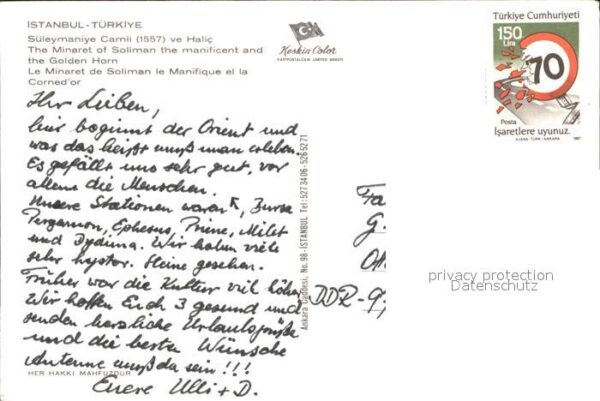 İSTANBUL - TÜRKİYE
Süleymaniye Camii (1557) ve Haliç
The Minaret of Soliman the manificent and
the Golden Horn
Le Minaret de Soliman le Manifique el la
Corned'or
Keskin Color
KARTPOSTALCILIK LIMITED ŞIRKETI
Türkiye Cumhuriyeti
150
Lira
70
Posta
İşaretlere uyunuz.
AJANS-TÜRK/ANKARA 1987
Ihr Lieben,
hier beginnt der Orient und
was das heißt muß man erleben.
Es gefällt uns sehr gut, vor
allem die Menschen.
Unsere Stationen waren, Bursa
Pergamon, Ephesus, Priene, Milet
und Dydima. Wir haben viele
sehr hystor. Steine gesehen.
Früher war die Kultur viel höher
Wir hoffen Euch 3 gesund und
senden herzliche Urlaubsgrüße
und die besten Wünsche
Antenne muß da sein!!!
Euere Ulli + D.
HER HAKKI MAHFUZDUR
Ankara Caddesi, No. 98 - İSTANBUL Tel: 527 34 06 - 526 52 71
Fa
G.
DDR-9
privacy protection
Datenschutz